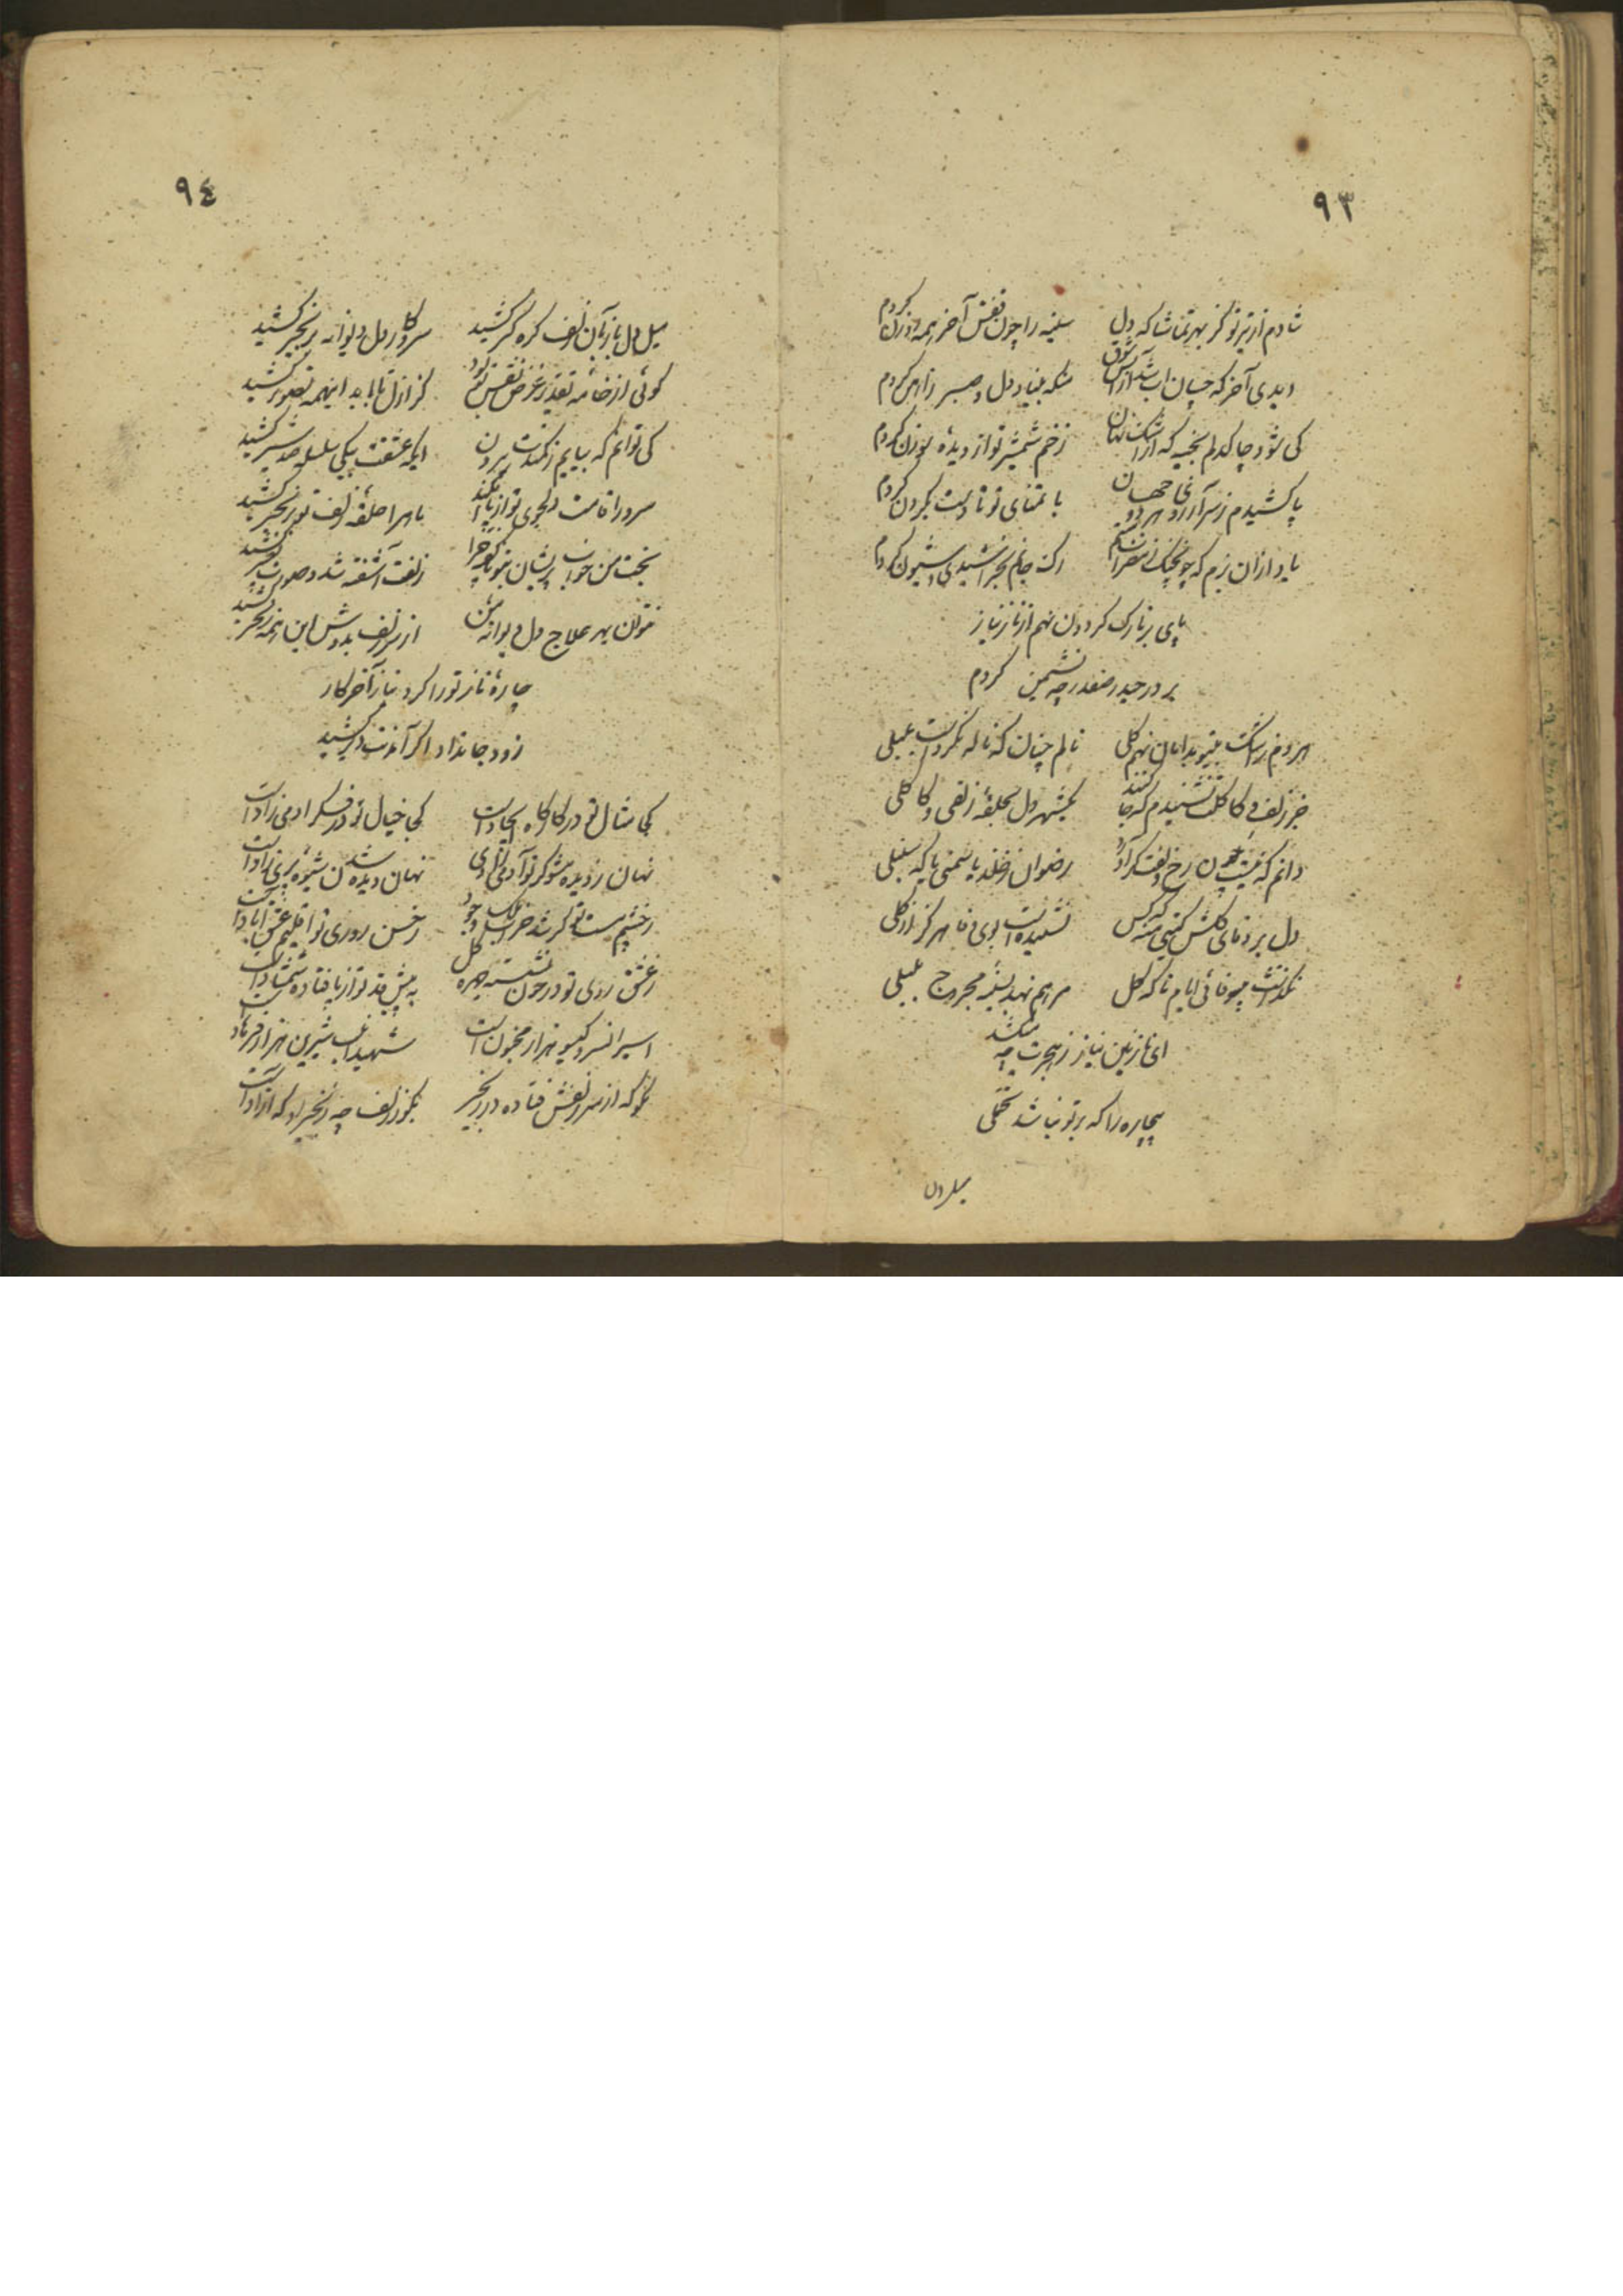 ٩٣
شادم از تیر تو کز بهر تماشا که دل
سینه را چون قفس آخر همه روزن کردم
دیدی آخر که چسان ز آتش شوق
منکه بنیاد دل و صبر ز آهن کردم
کی شود چاک دلم بخیه که از اشک نهان
زخم شمشیر تو از دیده سوزن کردم
پا کشیدم ز سر آرزوی هر دو جهان
با تمنای تو تا دست بگردن کردم
یاد از آن بزم که چون چنگ ز مضراب غم
رک جانم بخراشیدی و شیون کردم
پای بر تارک کردون نهم از ناز نیاز
بر در حیدر صفدر چه نشیمن کردم
هر دم ز اشک بدامان نهم کلی
نالم چنان که ناله نکرده است بلبلی
جز زلف و کاکلت نشنیدم که جا کنند
یکشهر دل بحلقه زلفی و کاکلی
دانم که نیست چون رخ و زلفت کر آورد
رضوان ز خلد یاسمنی یا که سنبلی
دل بر وفای کلشن کیتی منه که کس
نشنیده است بوی وفا هرگز از کلی
نگذاشت بیوفائی ایام تا که کل
مرهم نهد بسینه مجروح بلبلی
ای نازنین نیاز ز هجرت چه میکشد
بیچاره را که بر تو نباشد تحملی
میل دل
٩٤
میل دل باز بآن زلف کره کیر کشید
سر و کار دل دیوانه بزنجیر کشید
کوئی از خامه تقدیر غرض نقش تو بود
کز ازل تا بابد اینهمه تصویر کشید
کی توانم که بیایم ز کمندت بیرون
ایکه عشقت بیکی سلسله صد شیر کشید
سرو را قامت دلجوی تو از پا افکند
ماه را حلقه زلف تو بزنجیر کشید
بخت من خواب پریشان بنمود چرا
زلفت آشفته شد و صورت تعبیر کشید
نتوان بهر علاج دل دیوانه من
از سر زلف بدوش این همه زنجیر کشید
چاره ناز تو را کرد نیاز آخر کار
زود جان داد اگر آمدنت دیر کشید
کی مثال تو در کارگاه ایجاد است
کی خیال تو در فکر آدمی زاد است
نهان ز دیده مشو کر تو آدمی زادی
نهان ز دیده شدن شیوه پری زاد است
ز چشم مست تو کر شد خراب ملک وجود
ز حسن روی تو اقلیم عشق آباد است
ز عشق روی تو در خون نشسته چهره کل
به پیش قد تو از پا فتاده شمشاد است
اسیر آن سر کیسو هزار مجنون است
شهید آن لب شیرین هزار فرهاد است
نکو که از سر زلفش فتاده در زنجیر
بگو ز زلف چه زنجیر که آزاد است